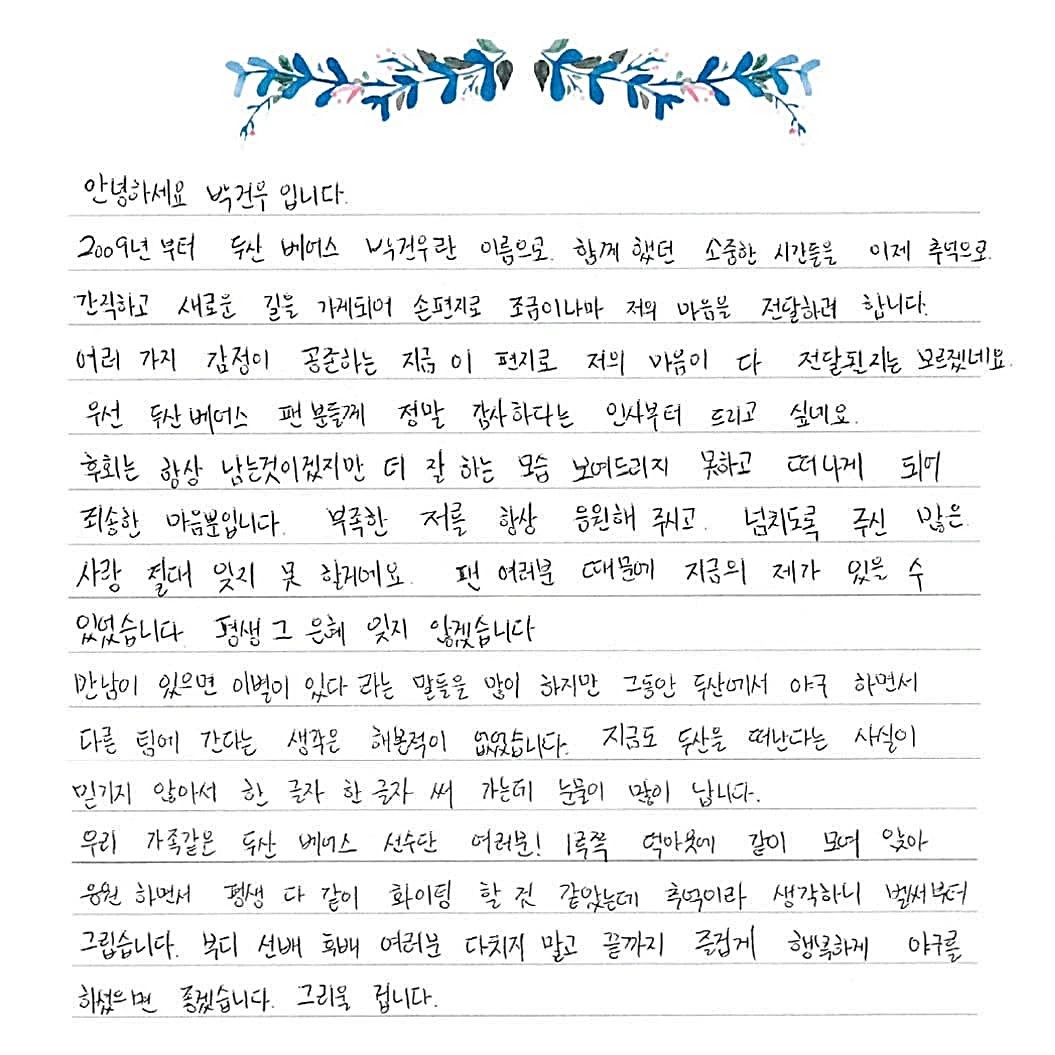 안녕하세요 박건우 입니다.
2009년 부터 두산 베어스 박건우란 이름으로. 함께 했던 소중한 시간들을 이제 추억으로.
간직하고 새로운 길을 가게되어 손편지로 조금이나마 저의 마음을 전달하려 합니다.
여러 가지 감정이 공존하는 지금 이 편지로 저의 마음이 다 전달될지는 모르겠네요.
우선 두산베어스 팬 분들께 정말 감사하다는 인사부터 드리고 싶네요.
후회는 항상 남는것이겠지만 더 잘 하는 모습 보여드리지 못하고 떠나게 되어
죄송한 마음뿐입니다. 부족한 저를 항상 응원해 주시고. 넘치도록 주신 많은.
사랑 절대 잊지 못 할거에요. 팬 여러분 때문에 지금의 제가 있을 수
있었습니다. 평생 그 은혜 잊지 않겠습니다
만남이 있으면 이별이 있다 라는 말들을 많이 하지만 그동안 두산에서 야구 하면서
다른 팀에 간다는 생각은 해본적이 없었습니다. 지금도 두산을 떠난다는 사실이
믿기지 않아서 한 글자 한 글자 써 가는데 눈물이 많이 납니다.
우리 가족같은 두산 베어스 선수단 여러분! 1루쪽 덕아웃에 같이 모여 앉아
응원 하면서 평생 다 같이 화이팅 할 것 같았는데 추억이라 생각하니 벌써부터
그립습니다. 부디 선배 후배 여러분 다치지 말고 끝까지 즐겁게 행복하게 야구를
하셨으면 좋겠습니다. 그리울 겁니다.